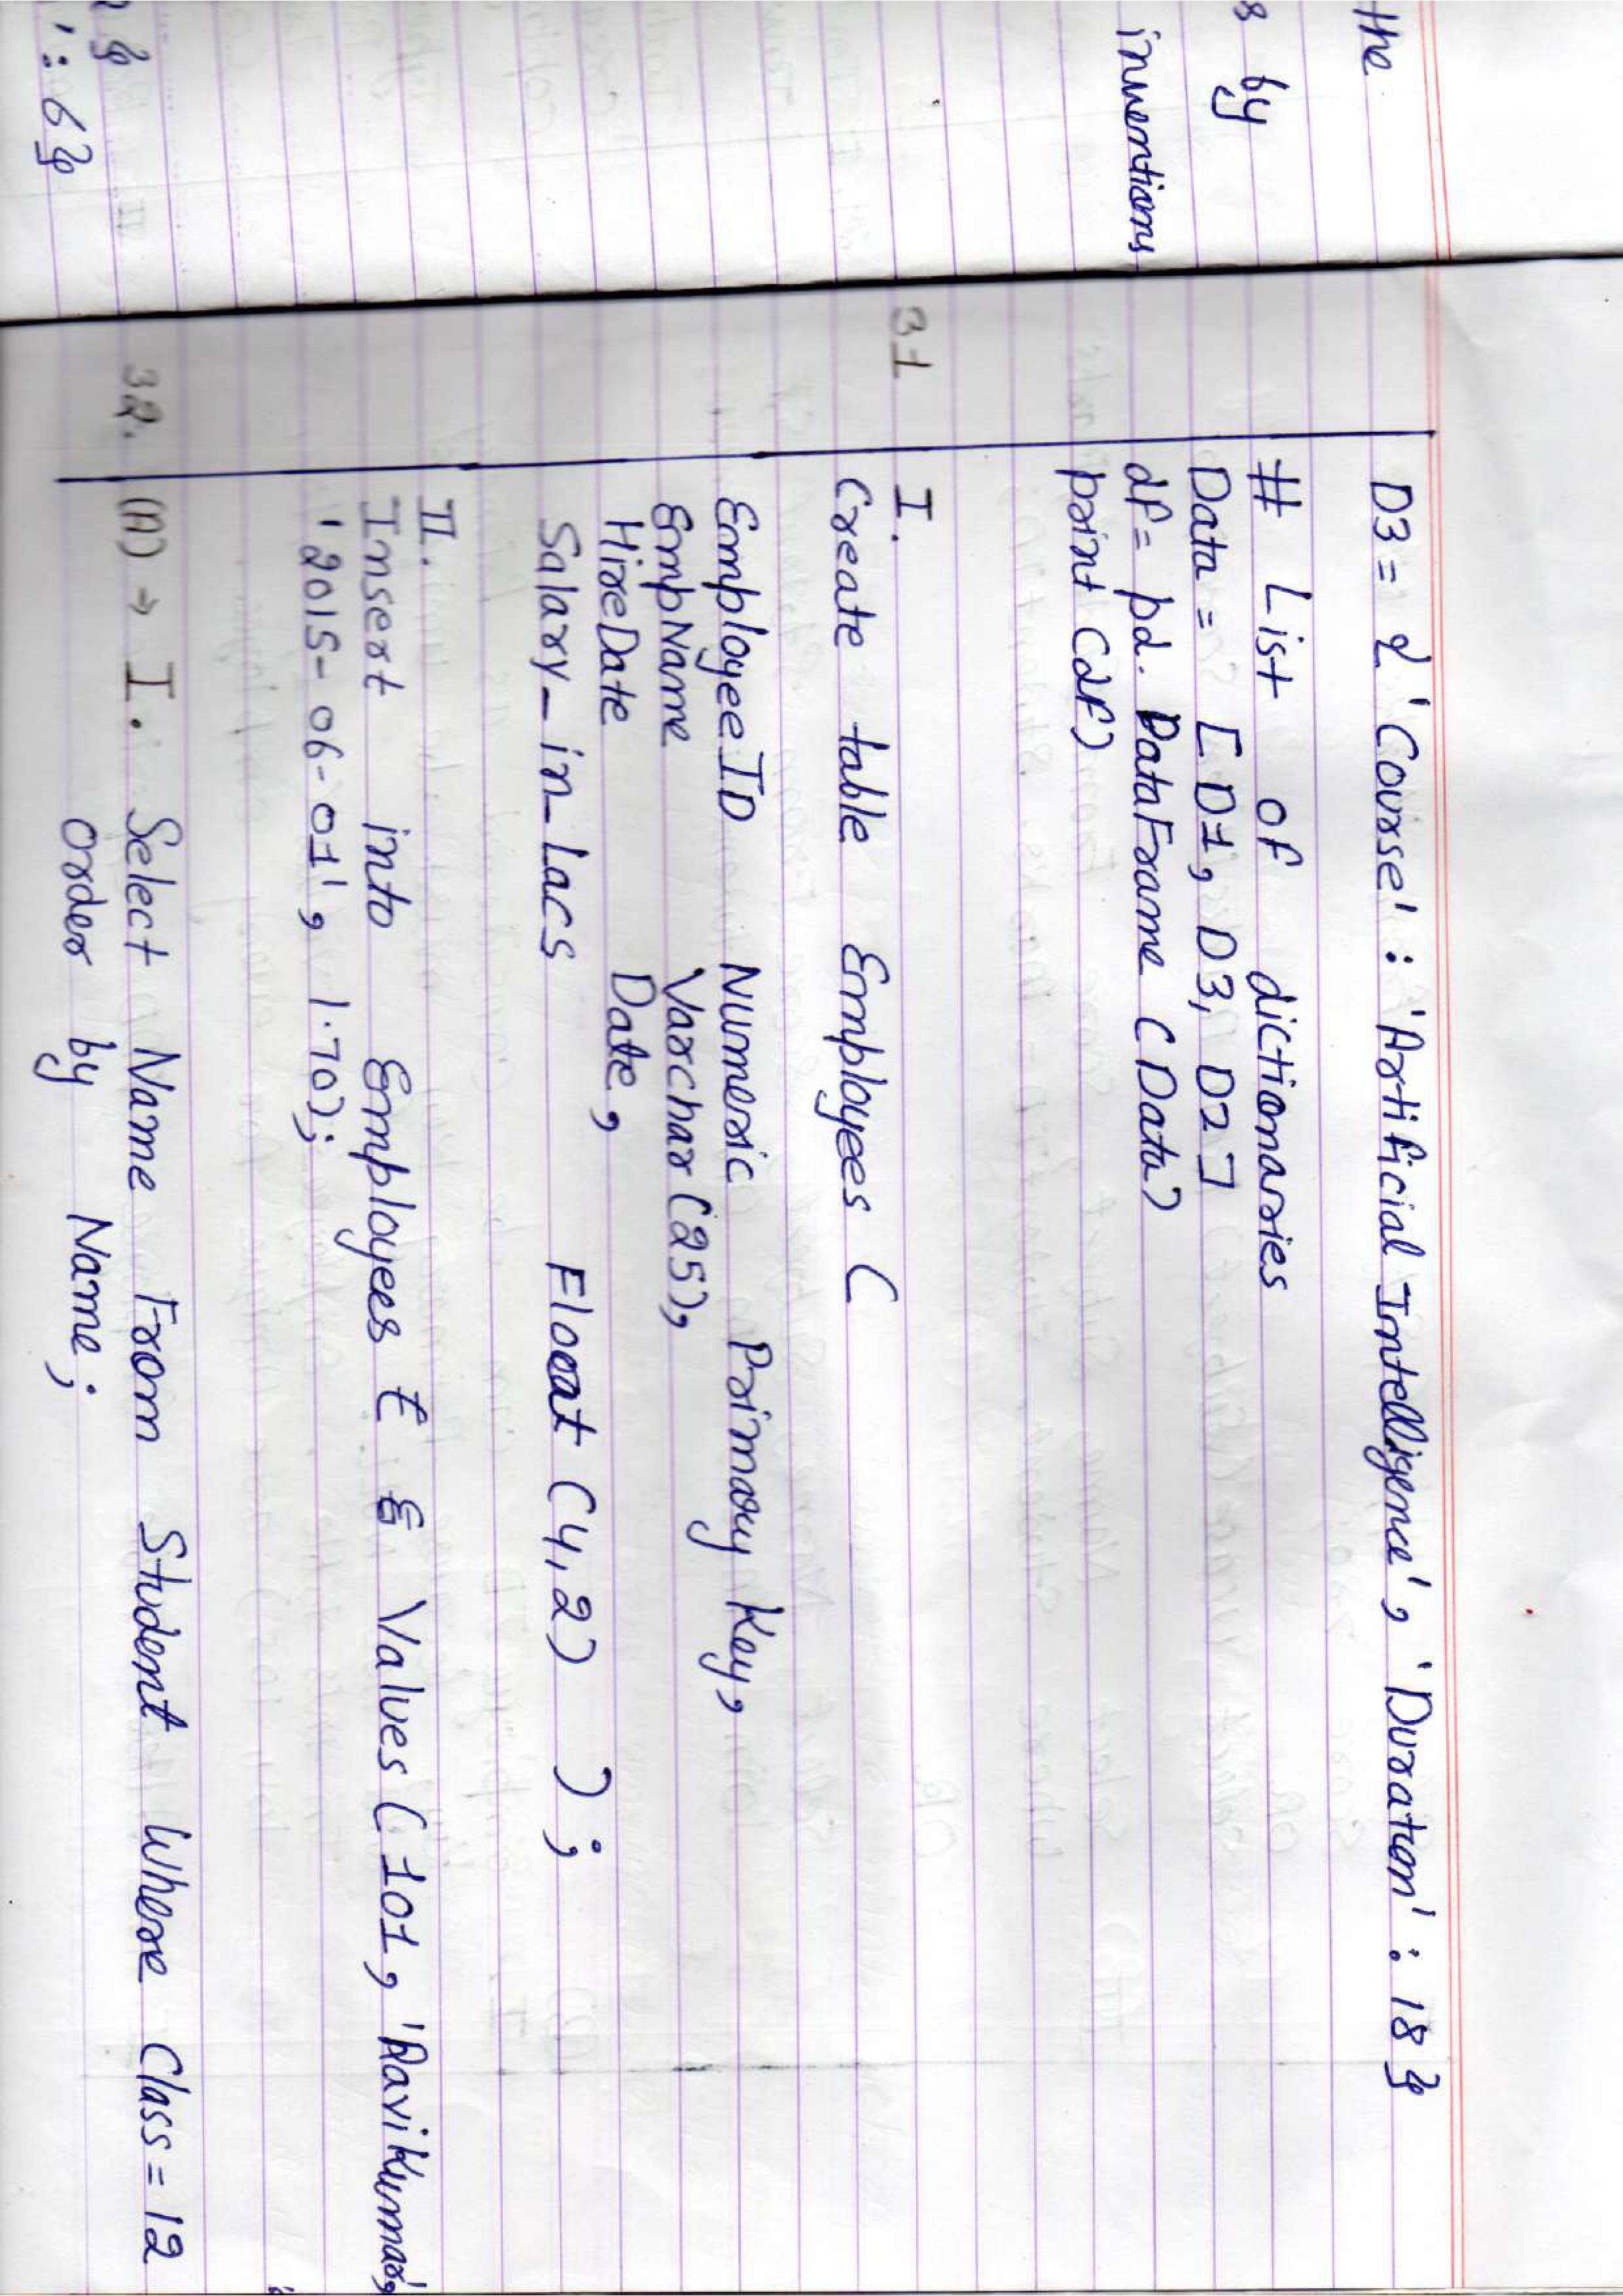 the
s by
inventions
}
' : 6}
D3 = { 'Course' : 'Artificial Intelligence', 'Duration' : 18 }
# List of dictionaries
Data = [ D1, D3, D2 ]
df = pd. DataFrame (Data)
print (df)
31 I.
Create table Employees (
EmployeeID Numeric Primary Key,
EmpName Varchar (25),
HireDate Date,
Salary_in_Lacs Float (4,2) ) ;
II.
Insert into Employees Values ( 101, 'Ravi Kumar',
'2015-06-01', 1.70);
32. (A) → I. Select Name From Student Where Class = 12
order by Name ;